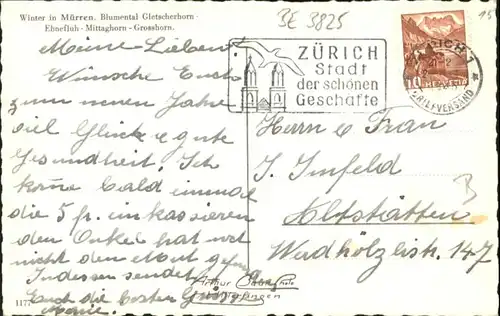 Winter in Mürren. Blumental Gletscherhorn -
Ebnefluh - Mittaghorn - Grosshorn.
BE 3825
Meine Lieben!
Wünsche Euch
zum neuen Jahre
viel Glück & gute
Gesundheit. Ich
kome bald einmal
die 5 fr. einkassieren
den Onkel hat wol
nicht den Mut
Indessen sendet
Euch die besten Grüsse
1177
ZÜRICH
Stadt
der schönen
Geschäfte
ZÜRICH 1
BRIEFVERSAND
10
HELVETIA
Herrn & Frau
J. Imfeld
B
Altstätten
Wadhölzlistr. 147
Arthur